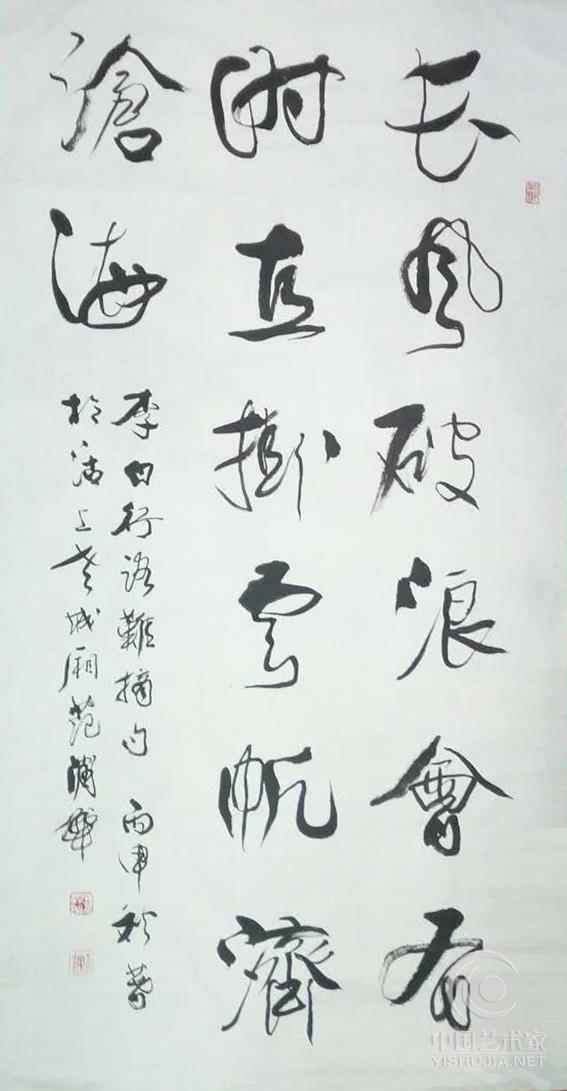 長風破浪會有
時直掛雲帆濟
滄海
李白行路難摘句 丙申秋暮
於沽上老城厢范
中国艺术家
YISHUJIA.NET